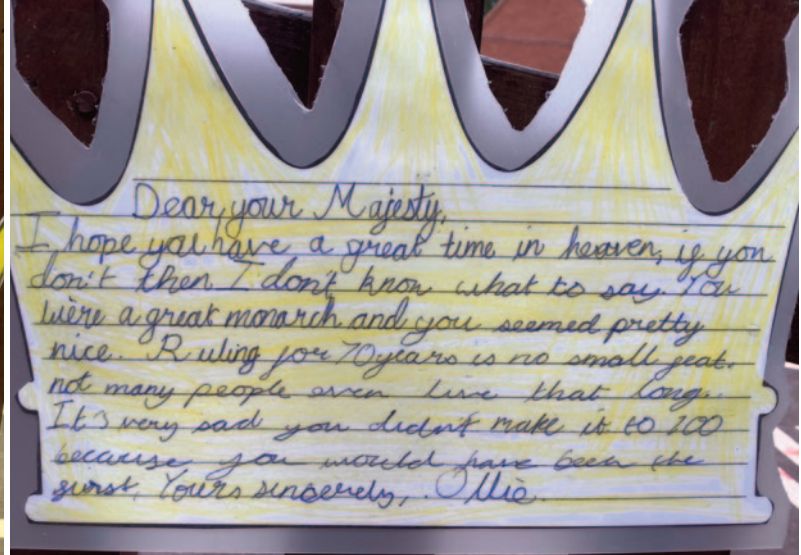 Dear, your Majesty,
I hope you have a great time in heaven, if you
don't then I don't know what to say. You
were a great monarch and you seemed pretty
nice. Ruling for 70 years is no small feat.
not many people even live that long.
It's very sad you didn't make it to 100
because you would have been the
first. Yours sincerely, Ollie.